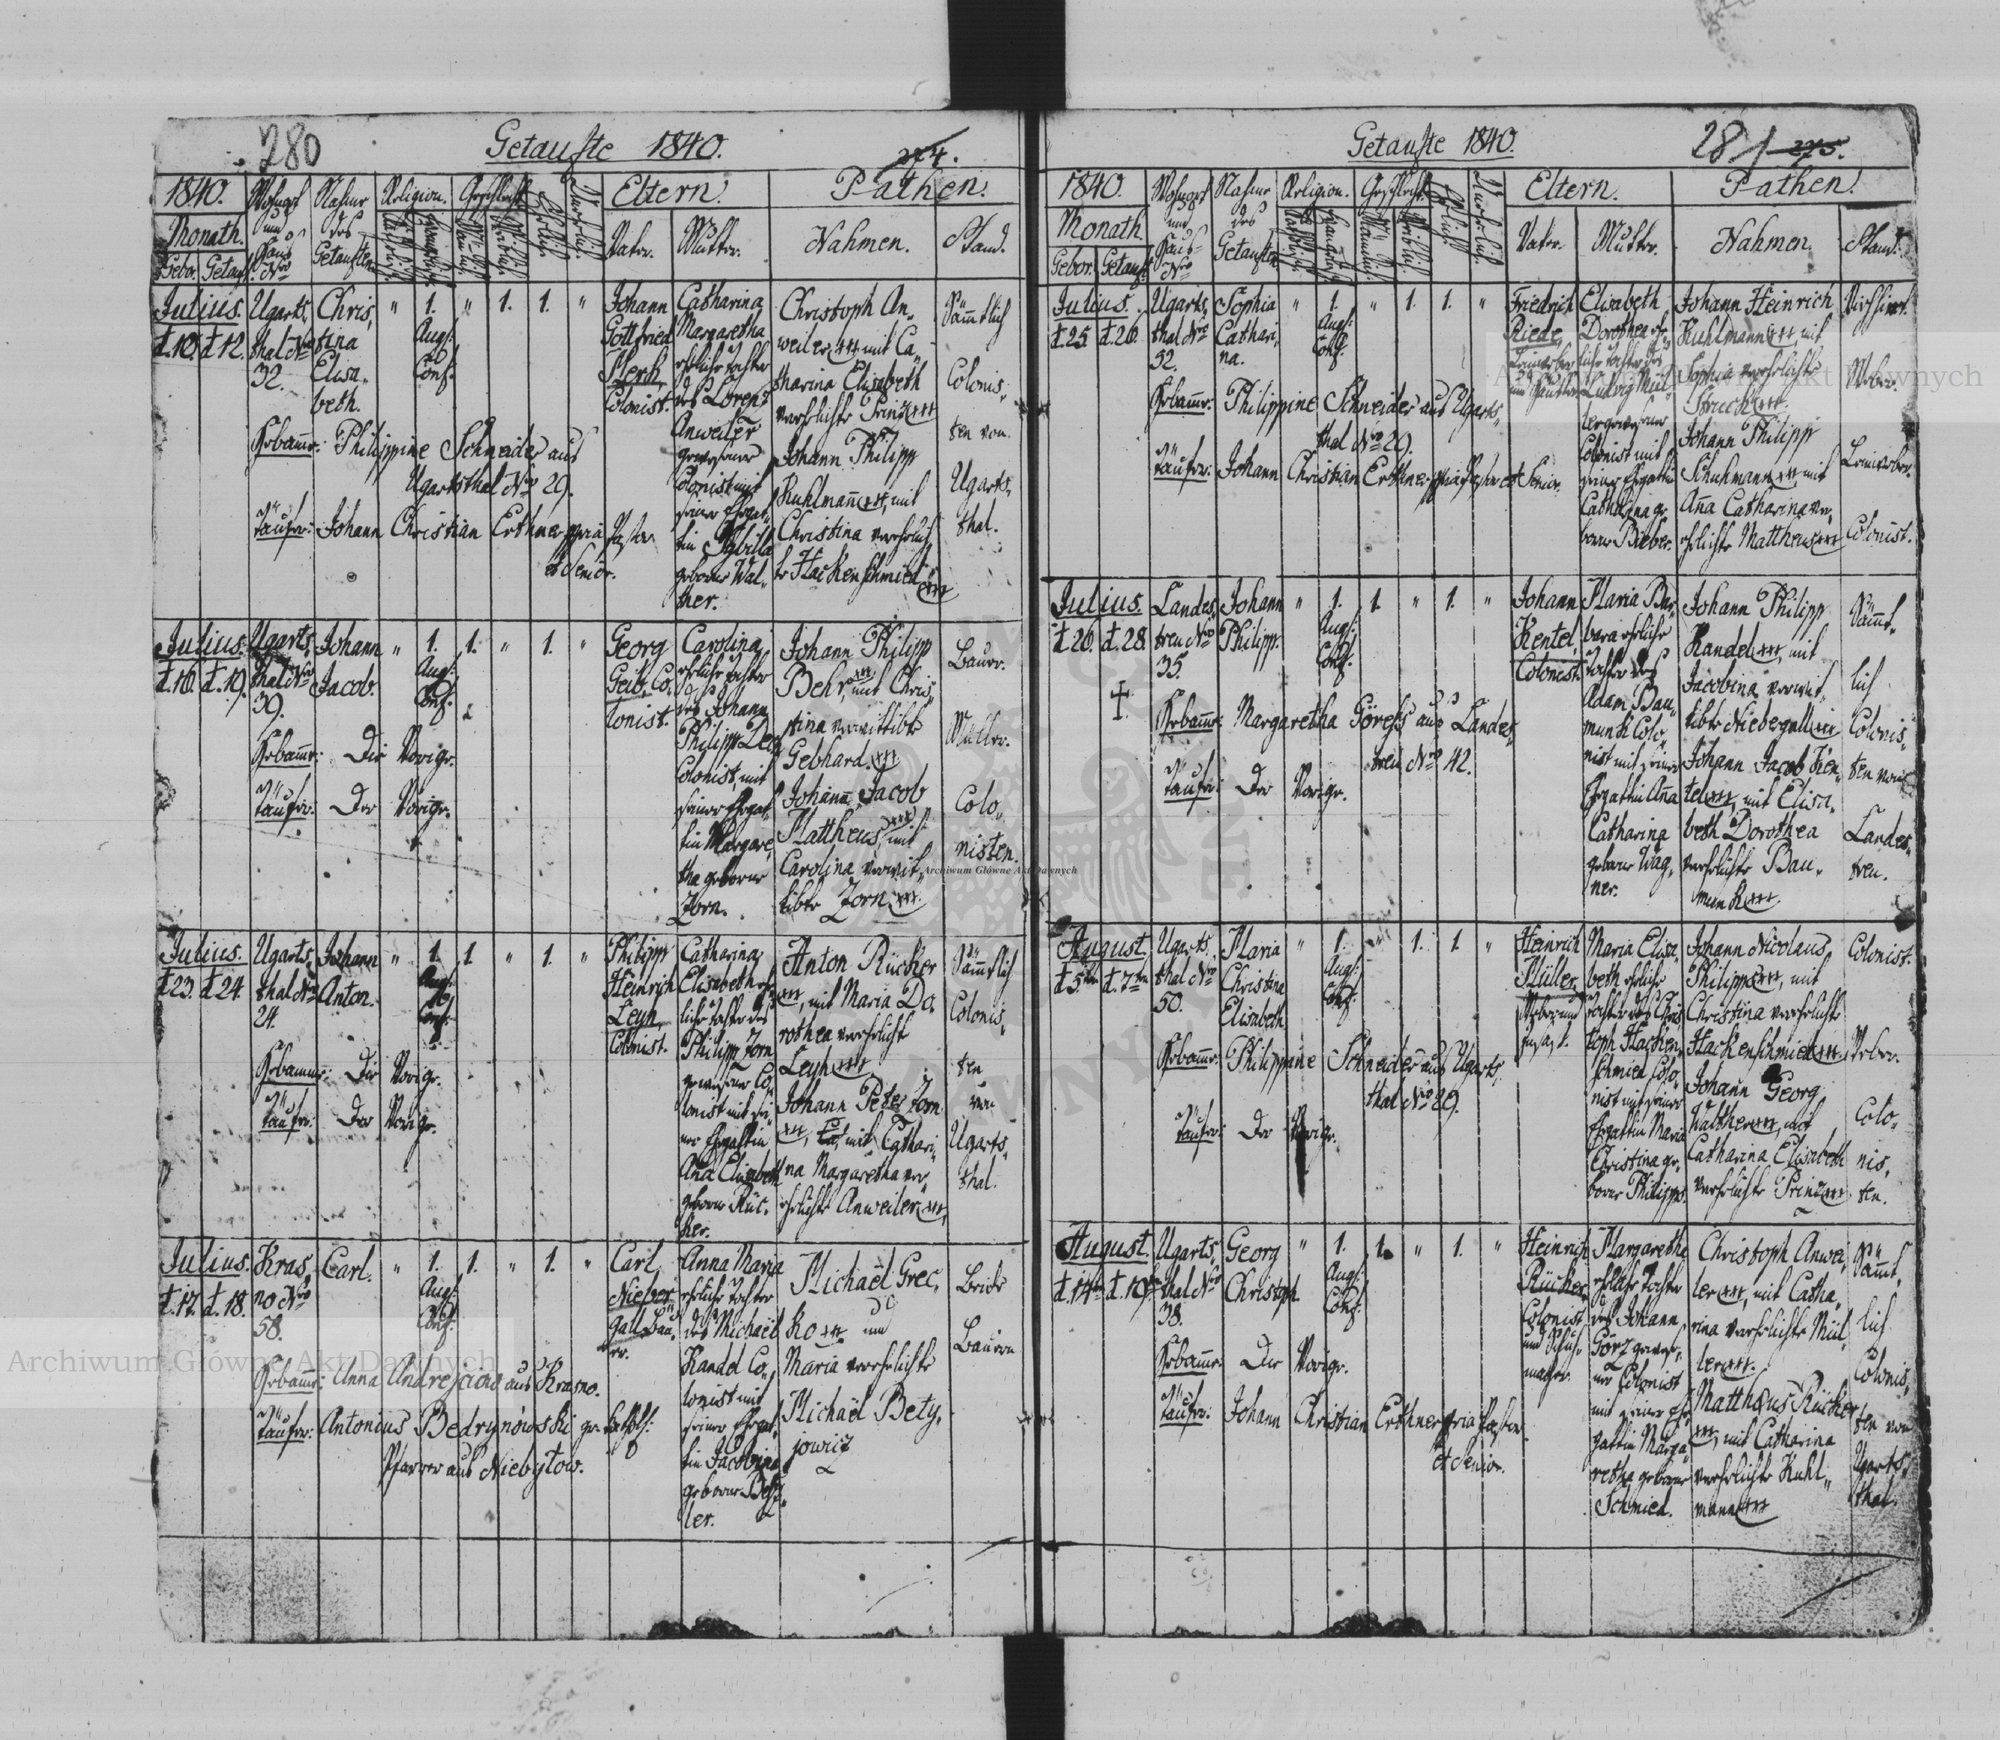 280
Getaufte 1840.
274.
1840.
Wohnort und Haus Nro
Nahme des Getauften.
Religion.
Geschlecht.
Eltern.
Pathen.
Monath.
Vater.
Mutter.
Nahmen.
Stand.
Gebor. Getauft
Julius.
d.10. d.12.
Ugarts,
thal Nro
32.
Chris,
tina
Elisa,
beth.
" 1. " 1. 1. "
Augs:
Conf:
Johann
Gottfried
Colonist.
Catharina
Margaretha
eheliche Tochter
des Lorenz
Anweiler
gewesener
Colonist mit
seiner Ehegat,
tin Sybilla
geborne Wal,
ther.
Christoph An,
weiler +++ mit Ca,
tharina Elisabeth
verehelichte Prinz +++
Johann Philipp
Kuhlmann +++, mit
Christina verehelich,
te Hackenschmied
+++
Sämmtlich
Colonis,
ten von
Ugarts,
thal.
Hebamme: Philippine Schneider aus
Ugartsthal Nro 29.
Täufer: Johann Christian Erthner ppria Pastor
et Senior.
Julius.
d.16. d.19.
Ugarts,
thal Nro
39.
Johann
Jacob.
" 1. 1. " 1. "
Augs:
Conf:
Georg
Geib, Co,
lonist.
Carolina,
eheliche Tochter
des Johann
Philipp Ley
Colonist, mit
seiner Ehegat,
tin Margare,
tha geborne
Zorn.
Johann Philipp
Behr, +++ mit Chris,
tina verwittibte
Gebhard. +++
Johann Jacob
Mattheus +++, mit
Carolina verwit,
tibte Zorn +++.
Bauer.
Müller.
Colo,
nisten.
Hebamme: Die Vorige.
Täufer. Der Vorige.
Julius.
d.23. d.24
Ugarts,
thal Nro
24.
Johann
Anton.
" 1. 1 " 1. "
Augs:
Conf:
Philipp
Heinrich
Leyh,
Colonist.
Catharina
Elisabeth ehe,
liche Tochter des
Philipp Zorn
gewesener Co,
lonist mit sei,
ner Ehegattin
Anna Elisabeth
geborne Rüc,
ker.
Anton Rücker
+++, mit Maria Do,
rothea verehelicht
Leyh +++
Johann Peter Zorn
+++, mit Cathari,
na Margaretha ver,
ehelichte Anweiler +++.
Sämmtlich
Colonis,
ten
von
Ugarts,
thal.
Hebamme: Die Vorige.
Täufer: Der Vorige.
Julius.
d.17. d.18.
Kras,
no Nro
58.
Carl.
" 1. 1. " 1. "
Augs:
Conf:
Carl
Nieber,
gall Bau,
er.
Anna Maria
eheliche Tochter
des Michael
Kandel Co,
lonist mit
seiner Ehegat,
tin Jacobina
geborne
ler.
Michaël Grec,
ko +++ und
Maria verehelichte
Michaël Bety,
jowicz
Beide
Bauern
Hebamme: Anna aus Krasno.
Täufer: Antonius Bedrynówski gr. kathl:
Pfarrer aus Niebylow.
Getaufte 1840.
281
275.
1840.
Wohnort und Haus Nro
Nahme des Getauften.
Religion.
Geschlecht.
Eltern.
Pathen.
Monath
Vater.
Mutter.
Nahmen.
Stand.
Gebor. Getauft
Julius.
d.25. d.26.
Ugarts,
thal Nro
52.
Sophia
Cathari,
na.
" 1. " 1. 1. "
Augs:
Conf:
Friedrich
Riede,
Leinweber
Elisabeth
Dorothea ehe,
liche Tochter des
Ludwig Mül,
ler gewesener
Colonist mit
seiner Ehegattin
Catharina ge,
borne Bieber.
Johann Heinrich
Kuhlmann +++, mit
Sophia verehelichte
Johann Philipp
Schuhmann +++, mit
Anna Catharina ver,
ehelichte Mattheus +++
Weber.
Leinweber.
Colonist.
Hebamme: Philippine Schneider aus Ugarts,
thal Nro 29.
Täufer: Johann Christian Erthner ppria Pastor et Senior.
Julius.
d.26. d.28.
Landes,
treu Nro
35.
Johann
Philipp.
" 1. 1. " 1. "
Augs:
Conf:
Johann
Kentel,
Colonist.
Maria Bar,
bara eheliche
Tochter des
Adam Bau,
munk Colo,
nist mit seiner
Ehegattin Anna
Catharina
geborne Wag,
ner.
Johann Philipp
Kandel +++, mit
Jacobina verwit,
tibte Niebergall +++
Johann Jacob Ken,
tel +++, mit Elisa,
beth Dorothea
verehelichte Bau,
munk +++.
Sämmt,
lich
Colonis,
ten von
Landes,
treu.
Hebamme: Margaretha Göress aus Landes,
treu Nro 42.
Täufer: Der Vorige.
August
d.5ten d.7ten
Ugarts,
thal Nro
50.
Maria
Christina
Elisabeth
" 1. " 1. 1. "
Augs:
Conf:
Heinrich
Müller,
Weber und
Insasse.
Maria Elisa,
beth eheliche
Tochter des Chris,
toph Hacken,
schmied Colo,
nist mit seiner
Ehegattin Maria
Christina ge,
borne Philipps.
Johann Nicolaus
Philipps +++, mit
Christina verehelichte
Hackenschmied +++
Johann Georg
Walther +++, mit
Catharina Elisabeth
verehelichte Prinz +++.
Colonist.
Weber.
Colo,
nis,
ten.
Hebamme: Philippine Schneider aus Ugarts,
thal Nro 29.
Täufer: Der Vorige.
August.
Ugarts,
thal Nro
38.
Georg
Christoph
" 1. 1. " 1. "
Augs:
Conf:
Heinrich
Rücker,
Colonist
und Schuh,
macher.
Margaretha
eheliche Tochter
des Johann
Görz gewese,
ner Colonist
mit seiner Ehe,
gattin Marga,
retha geborne
Schmied.
Christoph Anwei,
ler +++, mit Catha,
rina verehelichte Mül,
ler +++.
Matthaeus Rücker
+++, mit Catharina
verehelichte Kuhl,
mann +++
Sämmt,
lich
Colonis,
ten von
Ugarts,
thal.
Hebamme: Die Vorige.
Täufer: Johann Christian Erthner ppria Pastor
et Senior.
Archiwum Główne Akt Dawnych
Archiwum Główne Akt Dawnych
Archiwum Główne Akt Dawnych